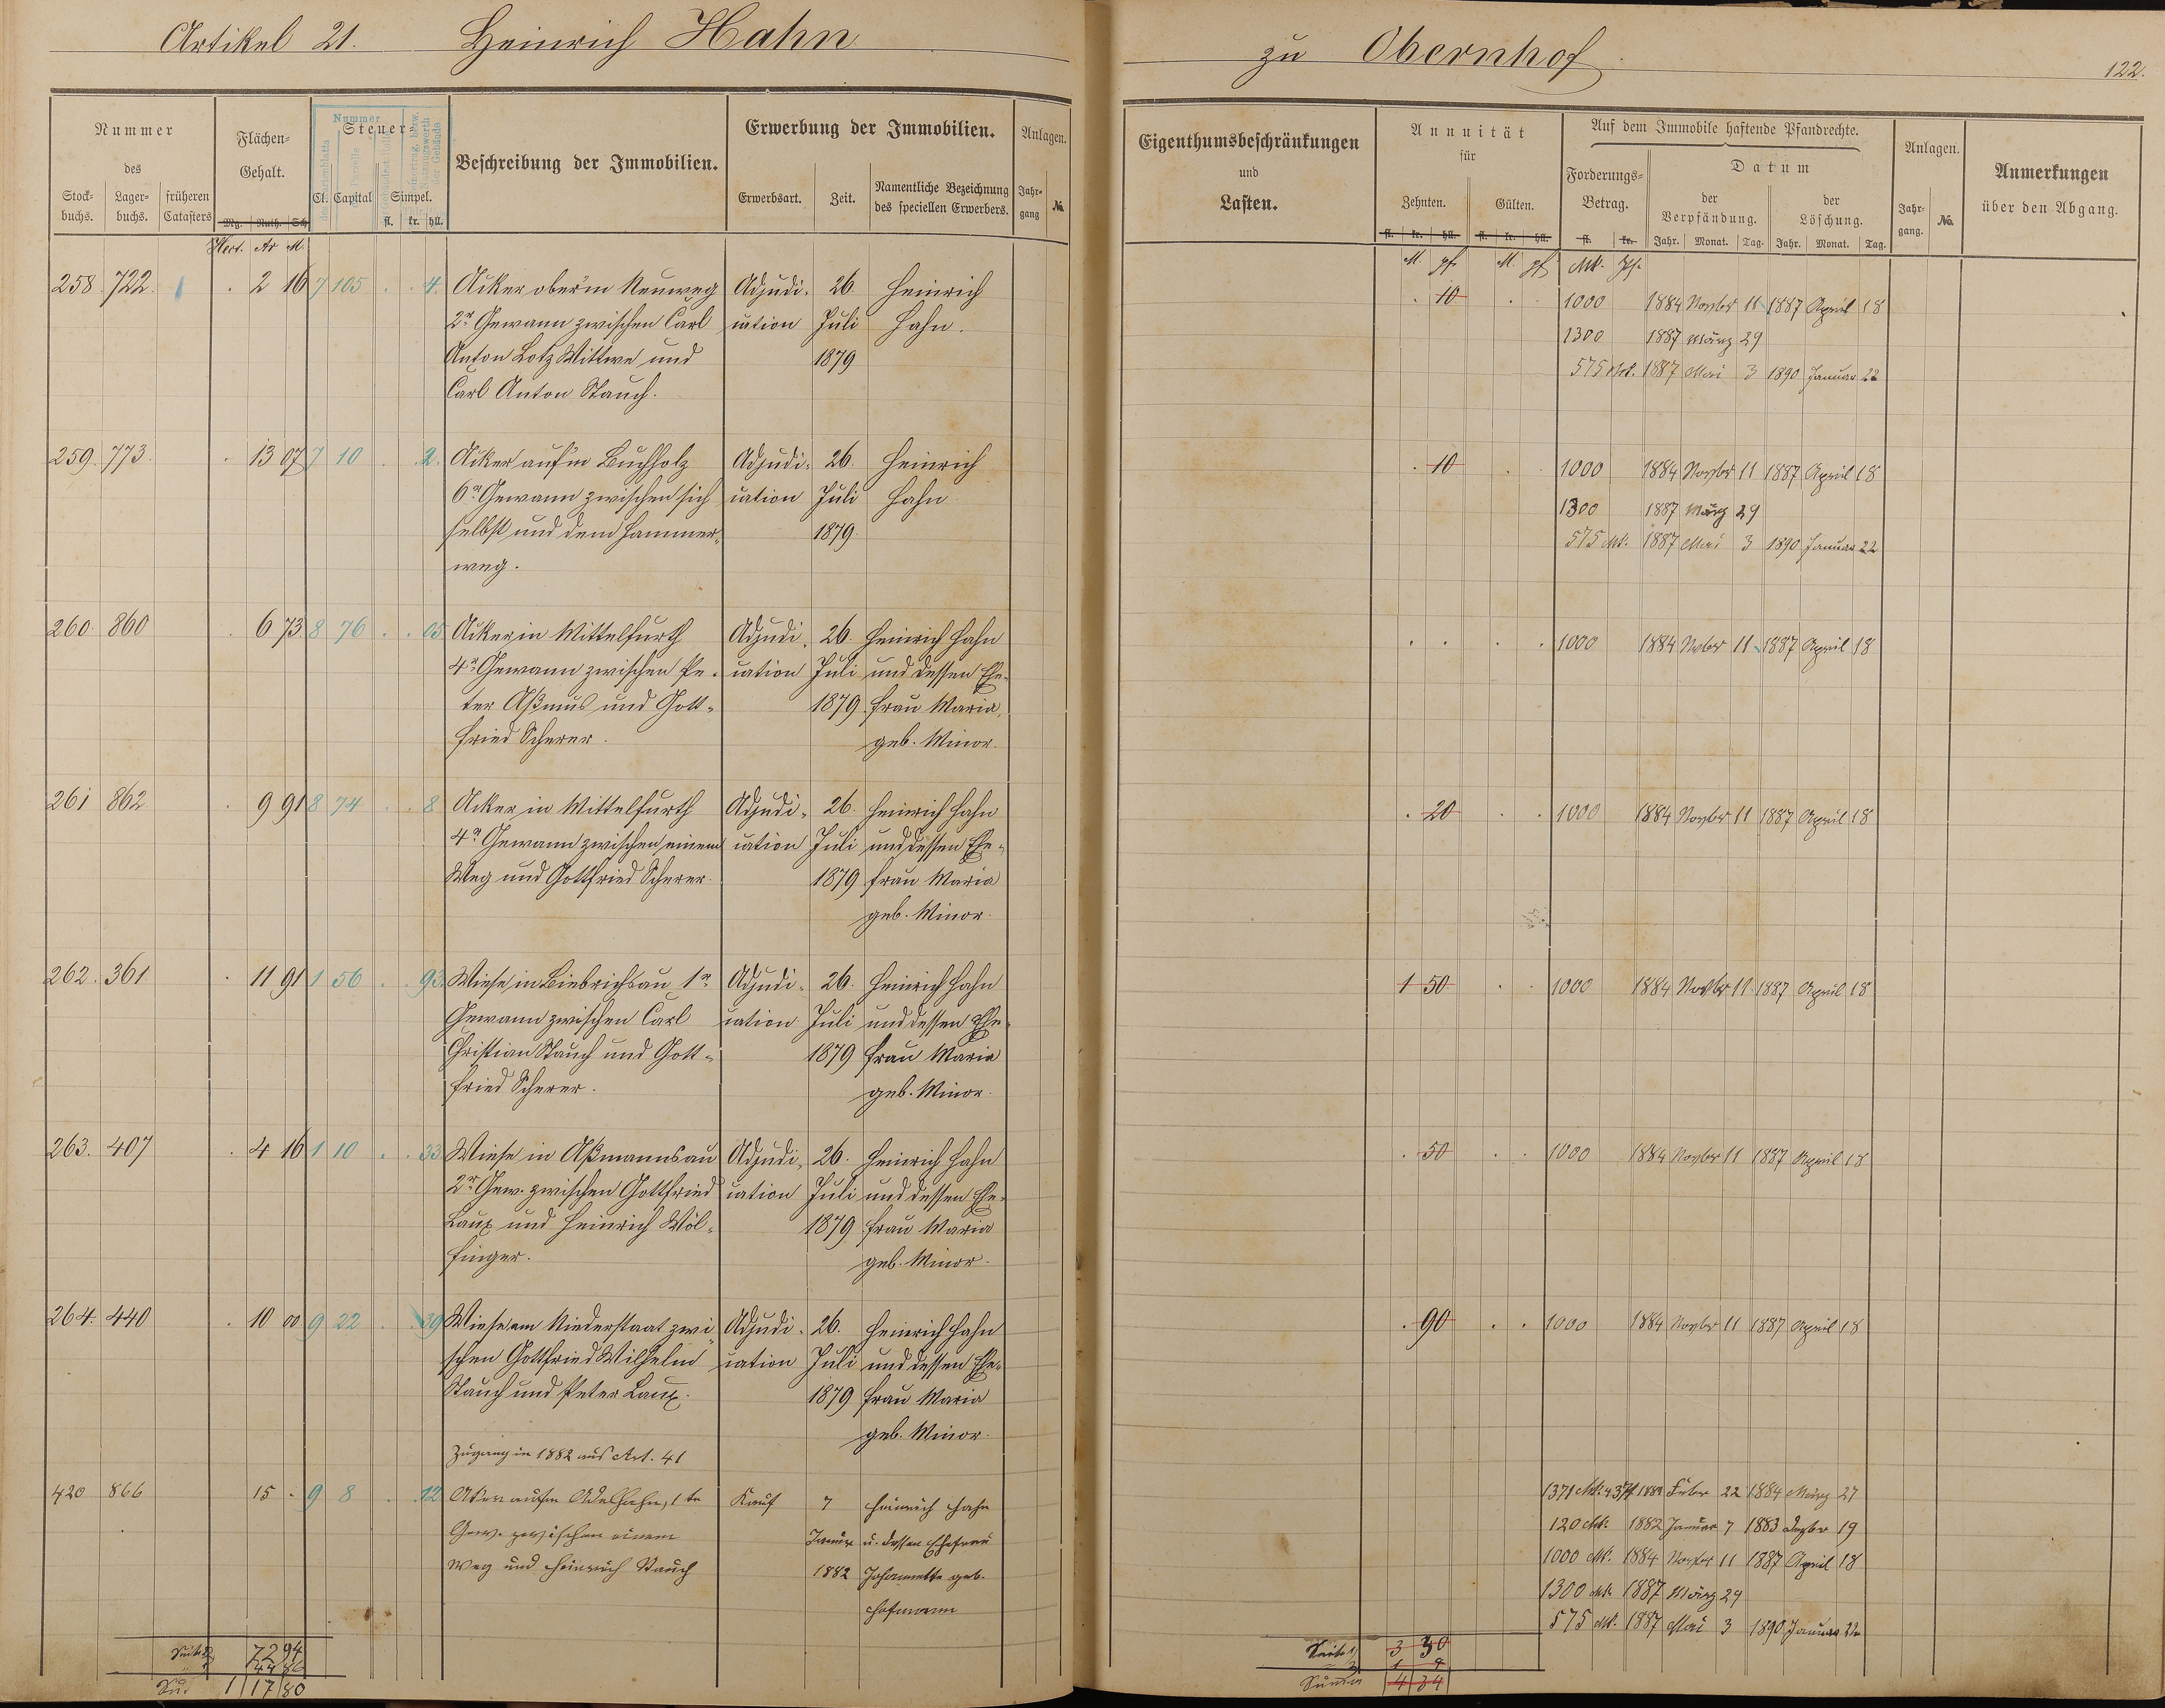 Artikel 21. Heinrich Hahn
zu Obernhof
122.
Nummer
des
Stock-
buchs.
Lager-
buchs.
früheren
Catasters
Flächen-
Gehalt.
Mg. Ruth. Sch.
Hect. Ar M.
Steuer-
Cl. Capital Simpel.
fl. kr. hll.
Nummer
Beschreibung der Immobilien.
Erwerbung der Immobilien.
Erwerbsart.
Zeit.
Namentliche Bezeichnung
des speciellen Erwerbers.
Anlagen.
Jahr-
gang
No.
Eigenthumsbeschränkungen
und
Lasten.
Annuität
für
Zehnten. Gülten.
fl. kr. hll. fl. kr. hll.
M. pf. M. pf.
Auf dem Immobile haftende Pfandrechte.
Forderungs-
Betrag.
fl. kr.
Mk. Pf.
Datum
der
Verpfändung.
der
Löschung.
Jahr. Monat. Tag. Jahr. Monat. Tag.
Anlagen.
Jahr-
gang.
No.
Anmerkungen
über den Abgang.
258. 722. 2 16 7 105 4. Acker ober'm Neuweg Adjudi- 26. Heinrich
2r Gewann zwischen Carl cation Juli Hahn.
Anton Lotz Wittwe und 1879
Carl Anton Stauch.
10 1000 1884 Novbr 11 1887 April 18
1300 1887 März 29
575 Mk. 1887 Mai 3 1890 Januar 22
259. 773. 13 07 7 10 2. Acker auf'm Buchholz Adjudi- 26. Heinrich
6r Gewann zwischen sich cation Juli Hahn
selbst und dem Hammer- 1879.
weg.
10 1000 1884 Novbr 11 1887 April 18
1300 1887 März 29
575 Mk. 1887 Mai 3 1890 Januar 22
260. 860 6 73 8 76 05 Acker in Mittelfurth Adjudi- 26. Heinrich Hahn
4r Gewann zwischen Pe- cation Juli und dessen Ehe-
ter Aßmus und Gott- 1879. frau Maria,
fried Scherer. geb. Minor.
1000 1884 Nvbr 11 1887 April 18
261 862 9 91 8 74 8 Acker in Mittelfurth Adjudi- 26. Heinrich Hahn
4r Gewann zwischen einem cation Juli und dessen Ehe-
Weg und Gottfried Scherer. 1879 frau Maria
geb. Minor.
20 1000 1884 Novbr 11 1887 April 18
262. 361 11 91 1 56 93. Wiese in Biebrichsau 1r Adjudi- 26. Heinrich Hahn
Gewann zwischen Carl cation Juli und dessen Ehe-
Christian Stauch und Gott- 1879 frau Maria
fried Scherer. geb. Minor.
1 50 1000 1884 Novbr 11 1887 April 18
263. 407 4 16 1 10 33 Wiese in Aßmannsau Adjudi- 26. Heinrich Hahn
2r Gew. zwischen Gottfried cation Juli und dessen Ehe-
Laux und Heinrich Wöl- 1879 frau Maria
finger. geb. Minor.
50 1000 1884 Novbr 11 1887 April 18
264. 440 10 00 9 22 39 Wiese am Niederstaat zwi- Adjudi- 26. Heinrich Hahn
schen Gottfried Wilhelm cation Juli und dessen Ehe-
Stauch und Peter Laux. 1879 frau Maria
geb. Minor.
90 1000 1884 Novbr 11 1887 April 18
Zugang in 1882 aus Art. 41
420 866 15 . 9 8 12 Acker auf'm Adelhahn, 1te Kauf 7 Heinrich Hahn
Gew. zwischen einem Januar u. dessen Ehefrau
Weg und Heinrich Stauch 1882 Johannette geb.
Hofmann
1371 Mk. 43 Pf 1881 Febr 22 1884 März 27
120 Mk. 1882 Januar 7 1883 Dezbr 19
1000 Mk. 1884 Novbr 11 1887 April 18
1300 Mk. 1887 März 29
575 Mk. 1887 Mai 3 1890 Januar 22
Seite 72 94
44 86
Su. 1 17 80
Seite 1 3 30
1 4
Summa 4 34